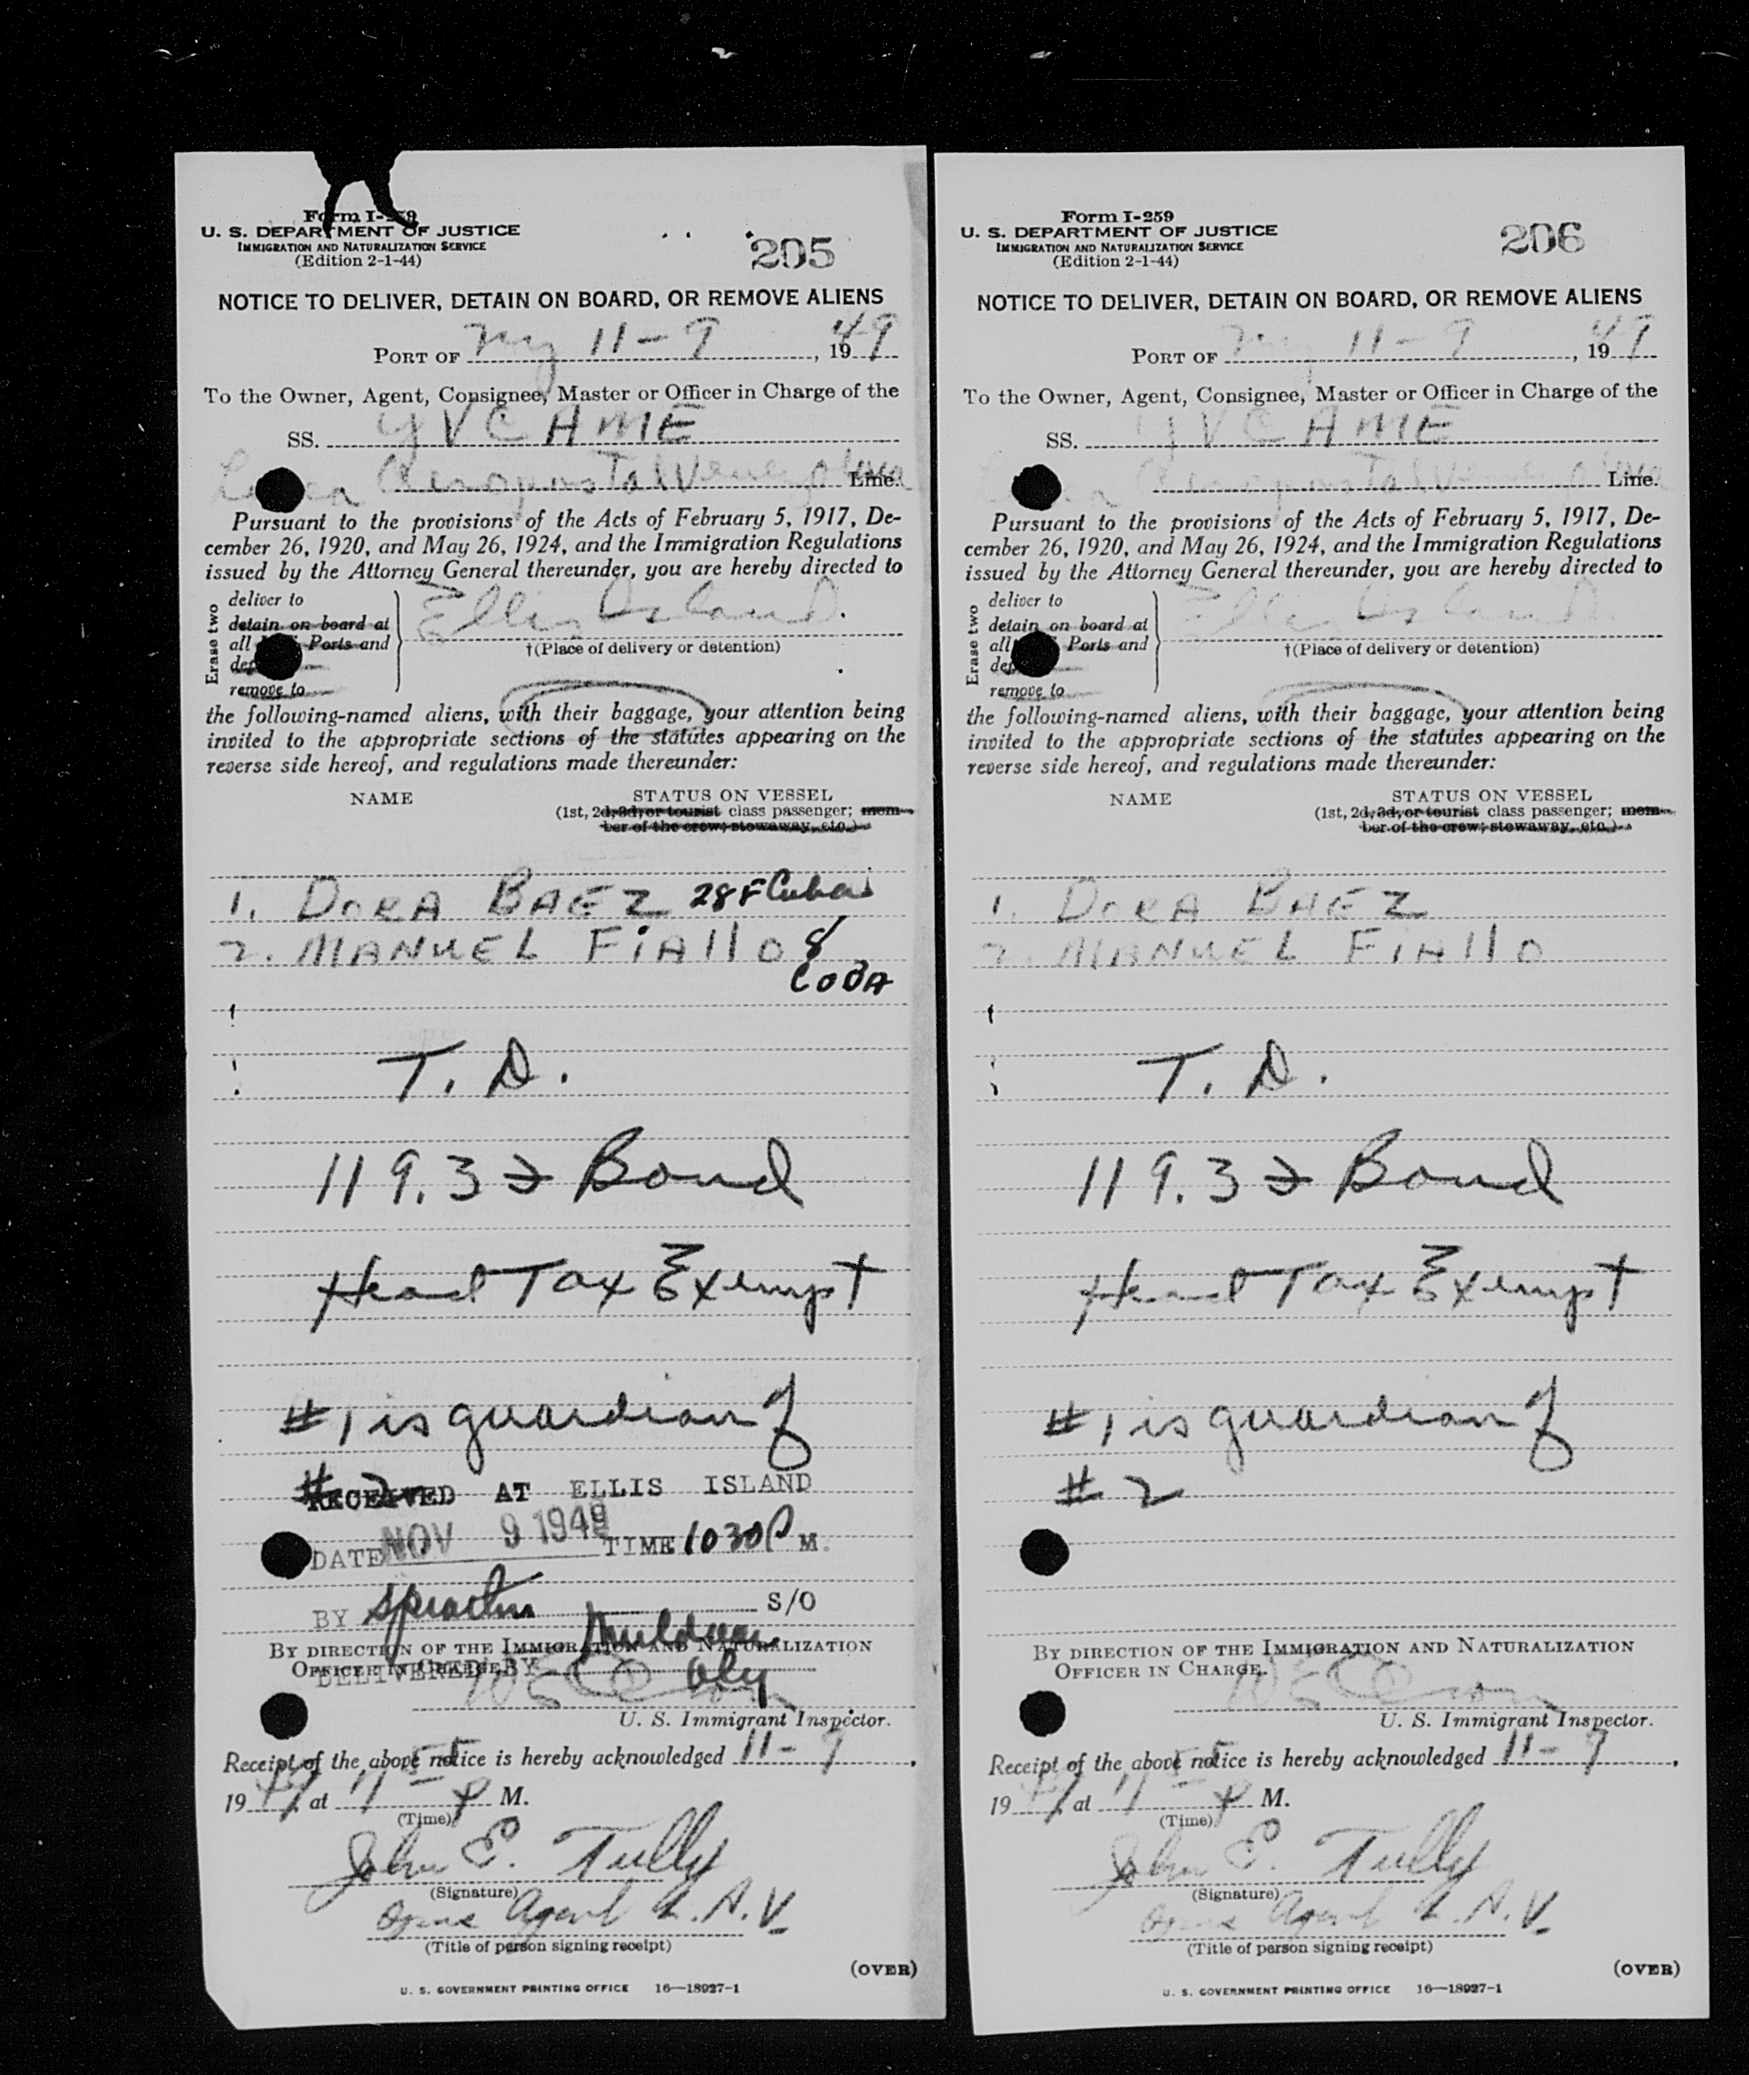 Form I-259
U. S. DEPARTMENT OF JUSTICE
IMMIGRATION AND NATURALIZATION SERVICE
(Edition 2-1-44)
205
NOTICE TO DELIVER, DETAIN ON BOARD, OR REMOVE ALIENS
PORT OF NY 11-9, 1949
To the Owner, Agent, Consignee, Master or Officer in Charge of the
SS. YVCAME
Linea Aeropostal Venezolana Line.
Pursuant to the provisions of the Acts of February 5, 1917, De-
cember 26, 1920, and May 26, 1924, and the Immigration Regulations
issued by the Attorney General thereunder, you are hereby directed to
Erase two
deliver to
detain on board at
all Ports and
remove to
Ellis Island.
†(Place of delivery or detention)
the following-named aliens, with their baggage, your attention being
invited to the appropriate sections of the statutes appearing on the
reverse side hereof, and regulations made thereunder:
NAME
STATUS ON VESSEL
(1st, 2d, 3d, or tourist class passenger; mem-
ber of the crew; stowaway, etc.)
1. DORA BAEZ 28 F Cuba
2. MANUEL FIAllO 8
CUBA
T. D.
119.3 Bond
Head Tax Exempt
#1 is guardian of
#2
RECEIVED AT ELLIS ISLAND
DATE NOV 9 1949 TIME 1030 P M.
BY S/O
BY DIRECTION OF THE IMMIGRATION AND NATURALIZATION
OFFICER IN CHARGE.
DELIVERED BY
U. S. Immigrant Inspector.
Receipt of the above notice is hereby acknowledged 11-9,
1949, at 11 55 P M.
(Time)
John E. Tully
(Signature)
Agent L.A.V.
(Title of person signing receipt)
(OVER)
U. S. GOVERNMENT PRINTING OFFICE 16—18927-1
Form I-259
U. S. DEPARTMENT OF JUSTICE
IMMIGRATION AND NATURALIZATION SERVICE
(Edition 2-1-44)
206
NOTICE TO DELIVER, DETAIN ON BOARD, OR REMOVE ALIENS
PORT OF NY 11-9, 1949
To the Owner, Agent, Consignee, Master or Officer in Charge of the
SS. YVCAME
Linea Aeropostal Venezolana Line.
Pursuant to the provisions of the Acts of February 5, 1917, De-
cember 26, 1920, and May 26, 1924, and the Immigration Regulations
issued by the Attorney General thereunder, you are hereby directed to
Erase two
deliver to
detain on board at
all Ports and
remove to
Ellis Island
†(Place of delivery or detention)
the following-named aliens, with their baggage, your attention being
invited to the appropriate sections of the statutes appearing on the
reverse side hereof, and regulations made thereunder:
NAME
STATUS ON VESSEL
(1st, 2d, 3d, or tourist class passenger; mem-
ber of the crew; stowaway, etc.)
1. DORA BAEZ
2. MANUEL FIAllO
T. D.
119.3 Bond
Head Tax Exempt
#1 is guardian of
#2
BY DIRECTION OF THE IMMIGRATION AND NATURALIZATION
OFFICER IN CHARGE.
U. S. Immigrant Inspector.
Receipt of the above notice is hereby acknowledged 11-9,
1949, at 11 55 P M.
(Time)
John E. Tully
(Signature)
Agent L.A.V.
(Title of person signing receipt)
(OVER)
U. S. GOVERNMENT PRINTING OFFICE 16—18927-1